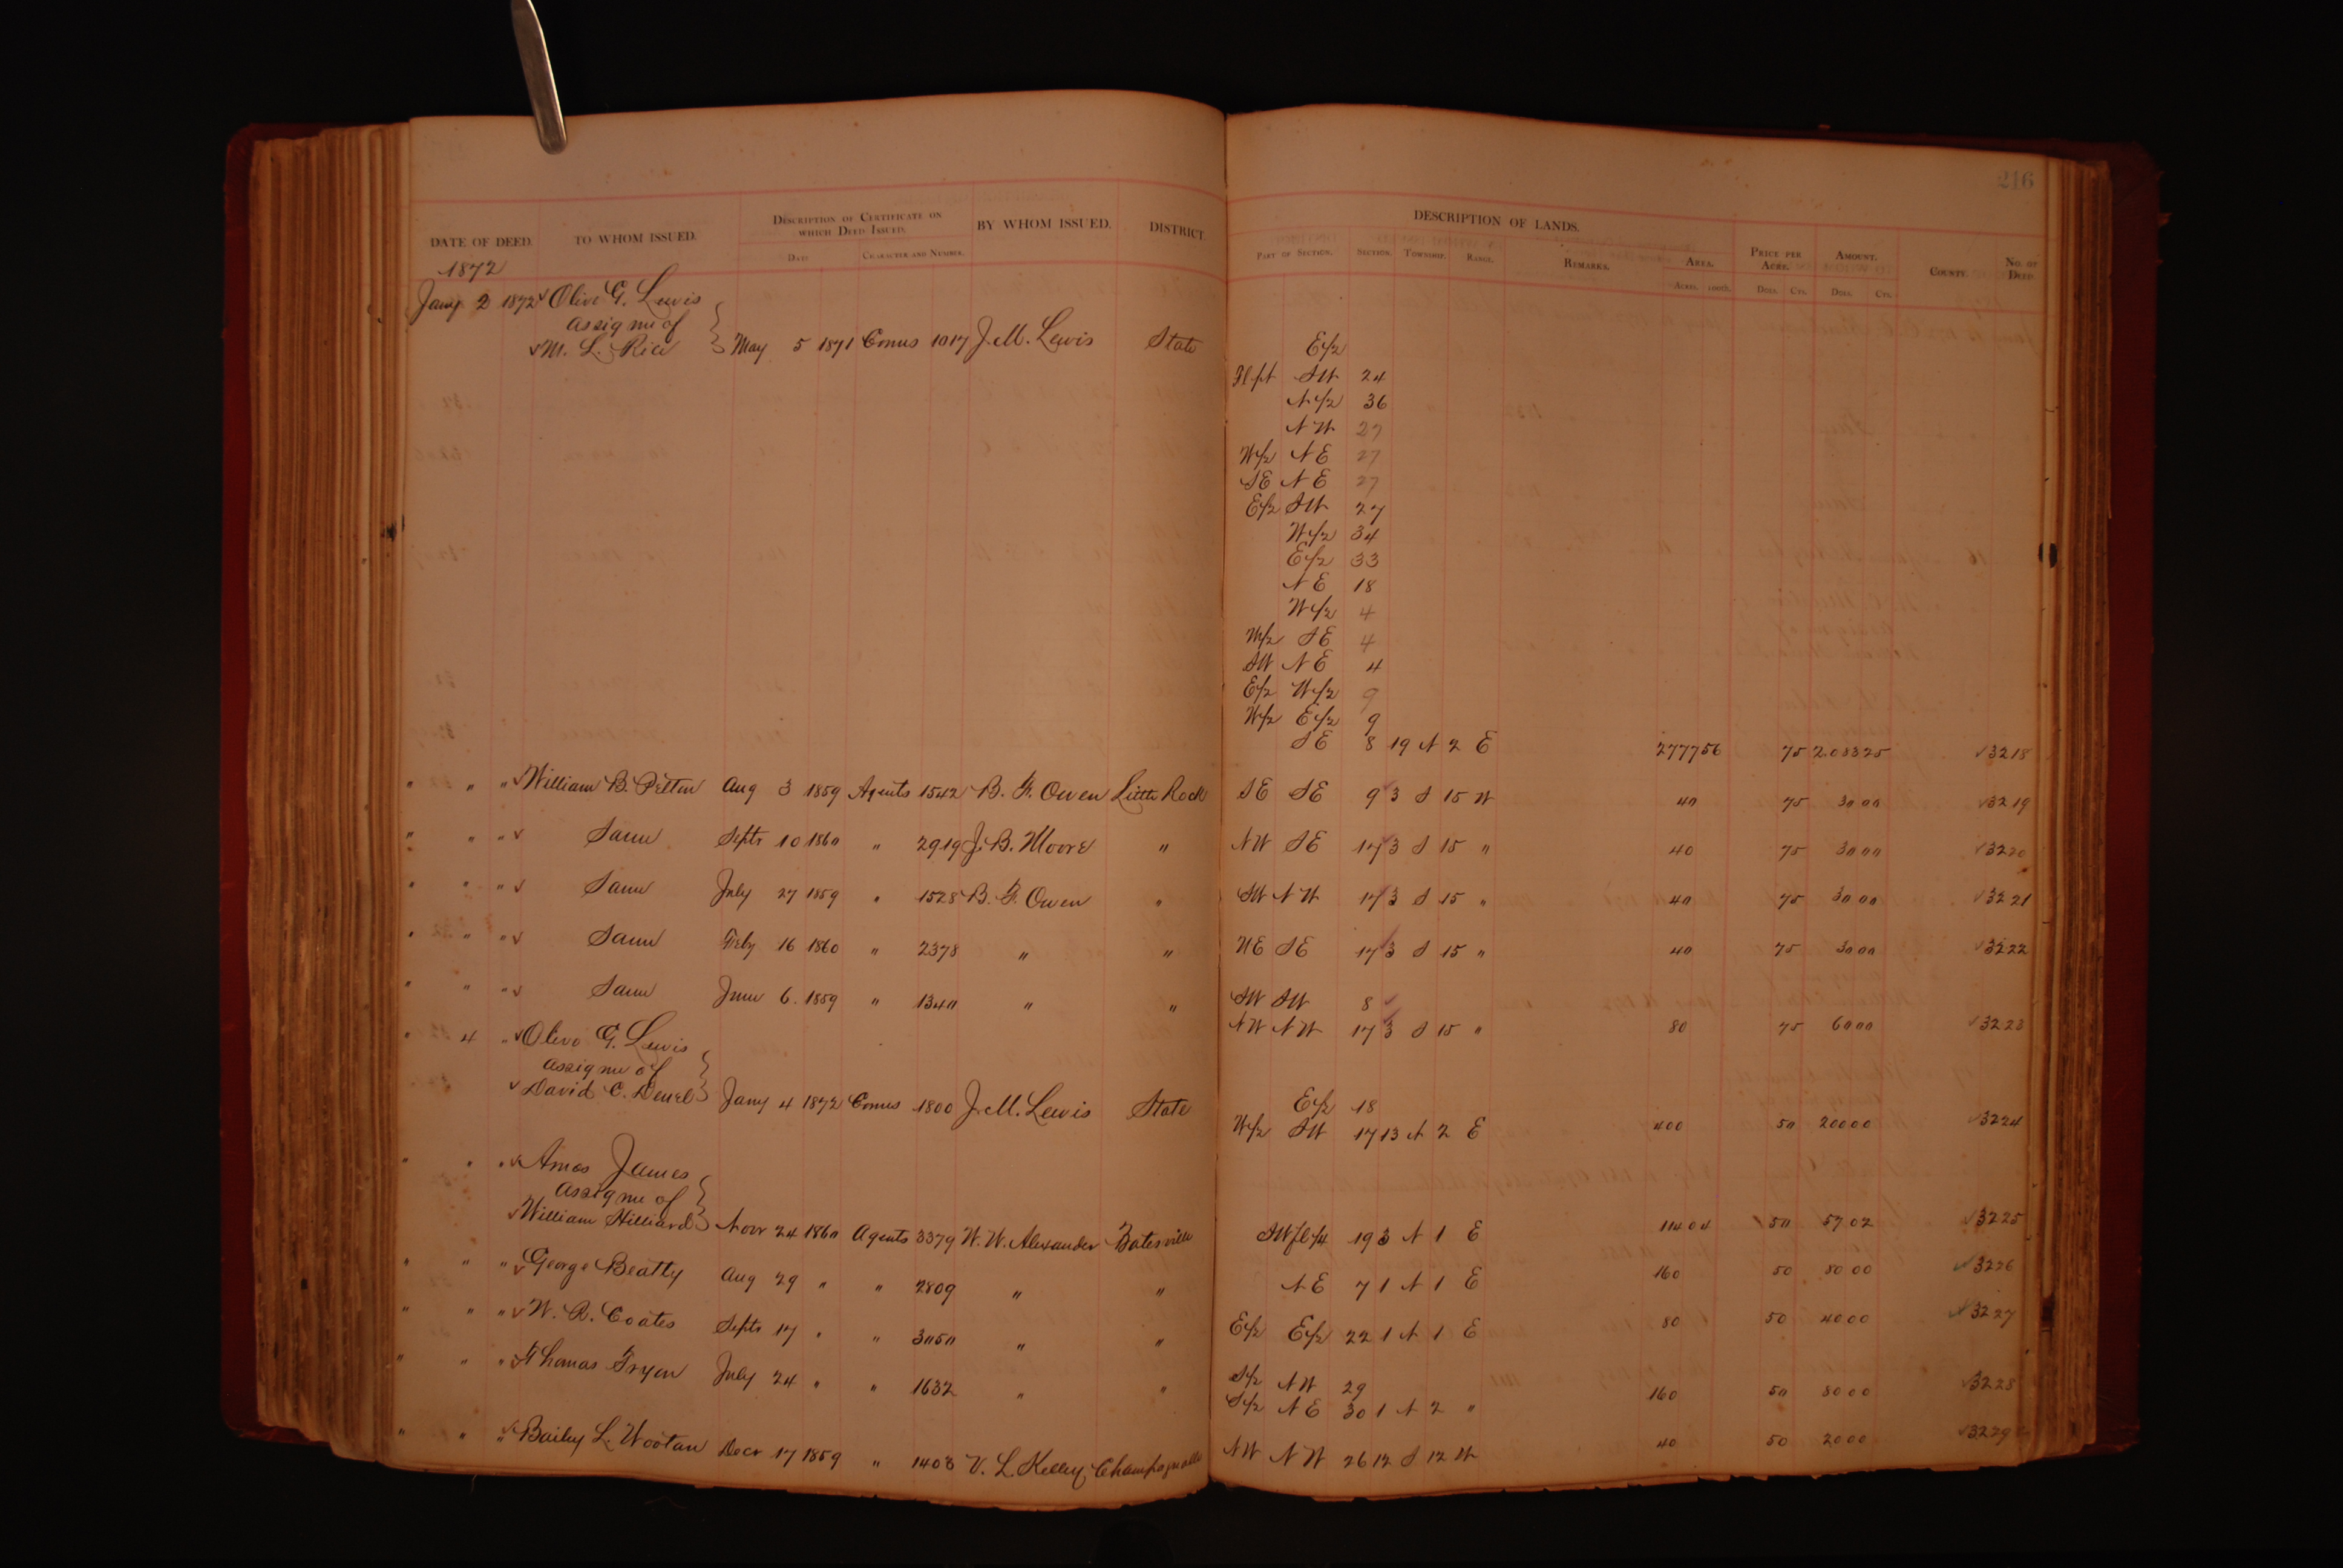 216
DATE OF DEED. TO WHOM ISSUED. DESCRIPTION OF CERTIFICATE ON WHICH DEED ISSUED. BY WHOM ISSUED. DISTRICT. DESCRIPTION OF LANDS. PRICE PER ACRE. AMOUNT. COUNTY. NO. OF DEED.
DATE CHARACTER AND NUMBER. PART OF SECTION. SECTION. TOWNSHIP. RANGE. REMARKS. AREA.
ACRES. 100ths. DOLS. CTS. DOLS. CTS.
1872
Jany 2 1872 Olive G. Lewis
assignee of
M. L. Rice May 5 1871 Comrs 1017 J. M. Lewis State E/2
Fl pt SW 24
N/2 36
NW 27
W/2 NE 27
SE NE 27
E/2 SW 27
W/2 34
E/2 33
NE 18
W/2 4
W/2 SE 4
SW NE 4
E/2 W/2 9
W/2 E/2 9
SE 8 19 N 2 E 2777 56 75 2083 25 3218
" " " William B. Pelton Aug 3 1859 Agents 1542 B. F. Owen Little Rock SE SE 9 3 S 15 W 40 75 30 00 3219
" " " Same Septr 10 1860 " 2919 J. B. Moore " NW SE 17 3 S 15 " 40 75 30 00 3220
" " " Same July 27 1859 " 1528 B. F. Owen " SW NW 17 3 S 15 " 40 75 30 00 3221
" " " Same Feby 16 1860 " 2378 " " NE SE 17 3 S 15 " 40 75 30 00 3222
" " " Same June 6 1859 " 1340 " " SW SW 8
NW NW 17 3 S 15 " 80 75 60 00 3223
" 4 " Olive G. Lewis
assignee of
David C. Deuel Jany 4 1872 Comrs 1800 J. M. Lewis State E/2 18
W/2 SW 17 13 N 2 E 400 50 200 00 3224
" " " Amos James
assignee of
William Hilliard Novr 24 1860 Agents 3379 W. W. Alexander Batesville SW fl 1/4 19 3 N 1 E 114 04 50 57 02 3225
" " " George Beatty Aug 29 " " 2809 " " NE 7 1 N 1 E 160 50 80 00 3226
" " " W. R. Coates Septr 17 " " 3050 " " E/2 E/2 22 1 N 1 E 80 50 40 00 3227
" " " Thomas Fryer July 24 " " 1632 " " S/2 NW 29
S/2 NE 30 1 N 2 " 160 50 80 00 3228
" " " Bailey L. Wootan Decr 17 1859 " 1408 V. L. Kelley Champagnolle NW NW 26 12 S 12 W 40 50 20 00 3229